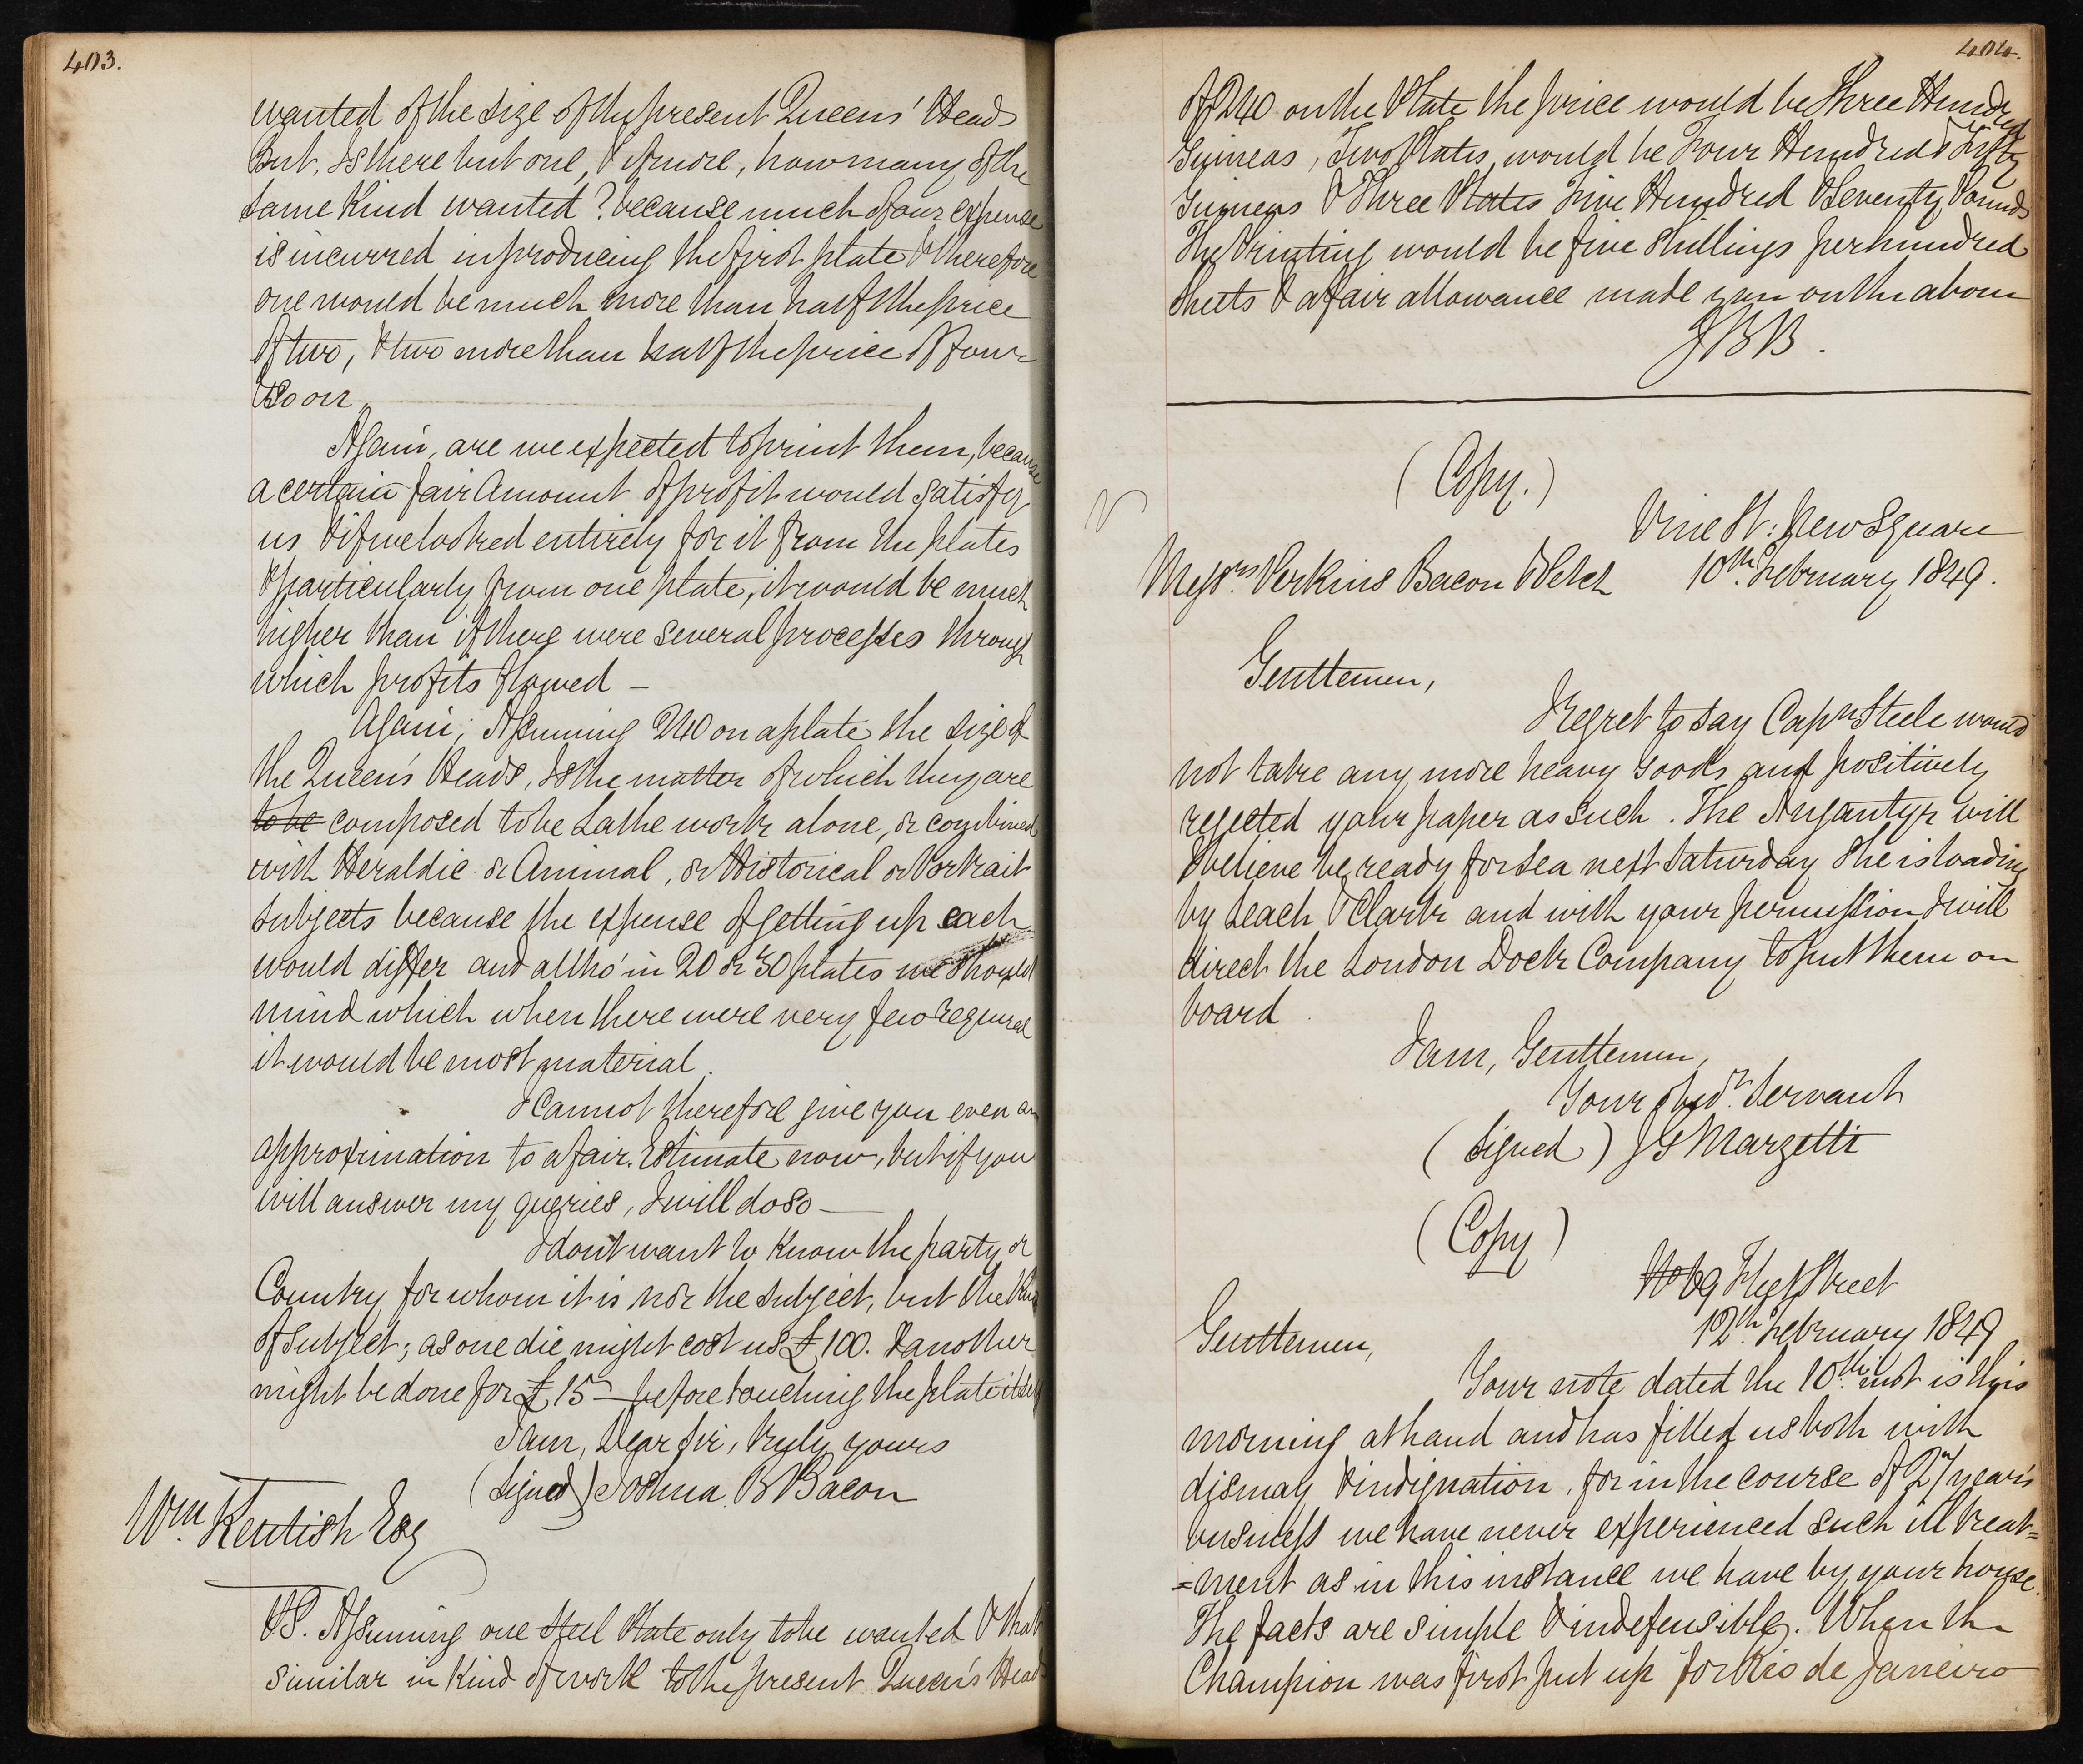 403.
wanted of the size of the present Queens' Heads
But, Is there but one, & if more, how many of the
same kind wanted? because much of our expense
is incurred in producing the first plate & therefore
one would be much more than half the price
of two, & two more than half the price of four
& so on
Again, are we expected to print them, because
a certain fair Amount of profit would satisfy
us & if we looked entirely for it from the plates
& particularly from one plate, it would be much
higher than if there were several processes through
which profits flowed —
Again; Assuming 240 on a plate the size of
the Queen's Heads, Is the matter of which they are
to be composed to be Lathe work alone, or combined
with Heraldic or Animal, or Historical or Portrait
subjects because the expense of getting up each
would differ and altho' in 20 or 30 plates we should
mind which when there were very few required
it would be most material.
I Cannot therefore give you even an
approximation to a fair Estimate now, but if you
will answer my queries, I will do so —
I dont want to know the party or
Country for whom it is nor the subject, but the kind
of subject; as one die might cost us £100. & another
might be done for £15 — before touching the plate itself
I am, Dear Sir, truly yours
(Signed) Joshua B Bacon
Wm Kentish Esq
PS. Assuming one Steel Plate only to be wanted & that
similar in kind of work to the present Queen's Head
404.
of 240 on the Plate the price would be Three Hundred
Guineas, Two Plates would be Four Hundred & Fifty
Guineas & Three Plates Five Hundred & Seventy Pounds
The Printing would be five Shillings per hundred
Sheets & a fair allowance made you on the above
JBB.
(Copy.)
Vine St: New Square
Messrs. Perkins Bacon & Petch
10th. February 1849.
Gentlemen,
I regret to say Capn Steele would
not take any more heavy goods and positively
rejected your paper as such. The Angantyr will
I believe be ready for sea next Saturday She is loading
by Leach & Clark and with your permission I will
direct the London Dock Company to put them on
board.
I am, Gentlemen,
Your obedt. Servant
(Signed) J G Marzetti
(Copy)
No 69 Fleet Street
12th. February 1849
Gentlemen,
Your note dated the 10th. inst is this
morning at hand and has filled us both with
dismay & indignation, for in the course of 27 years
business we have never experienced such ill treat=
=ment as in this instance we have by your house.
The facts are simple & indefensible. When the
Champion was first put up for Rio de Janeiro